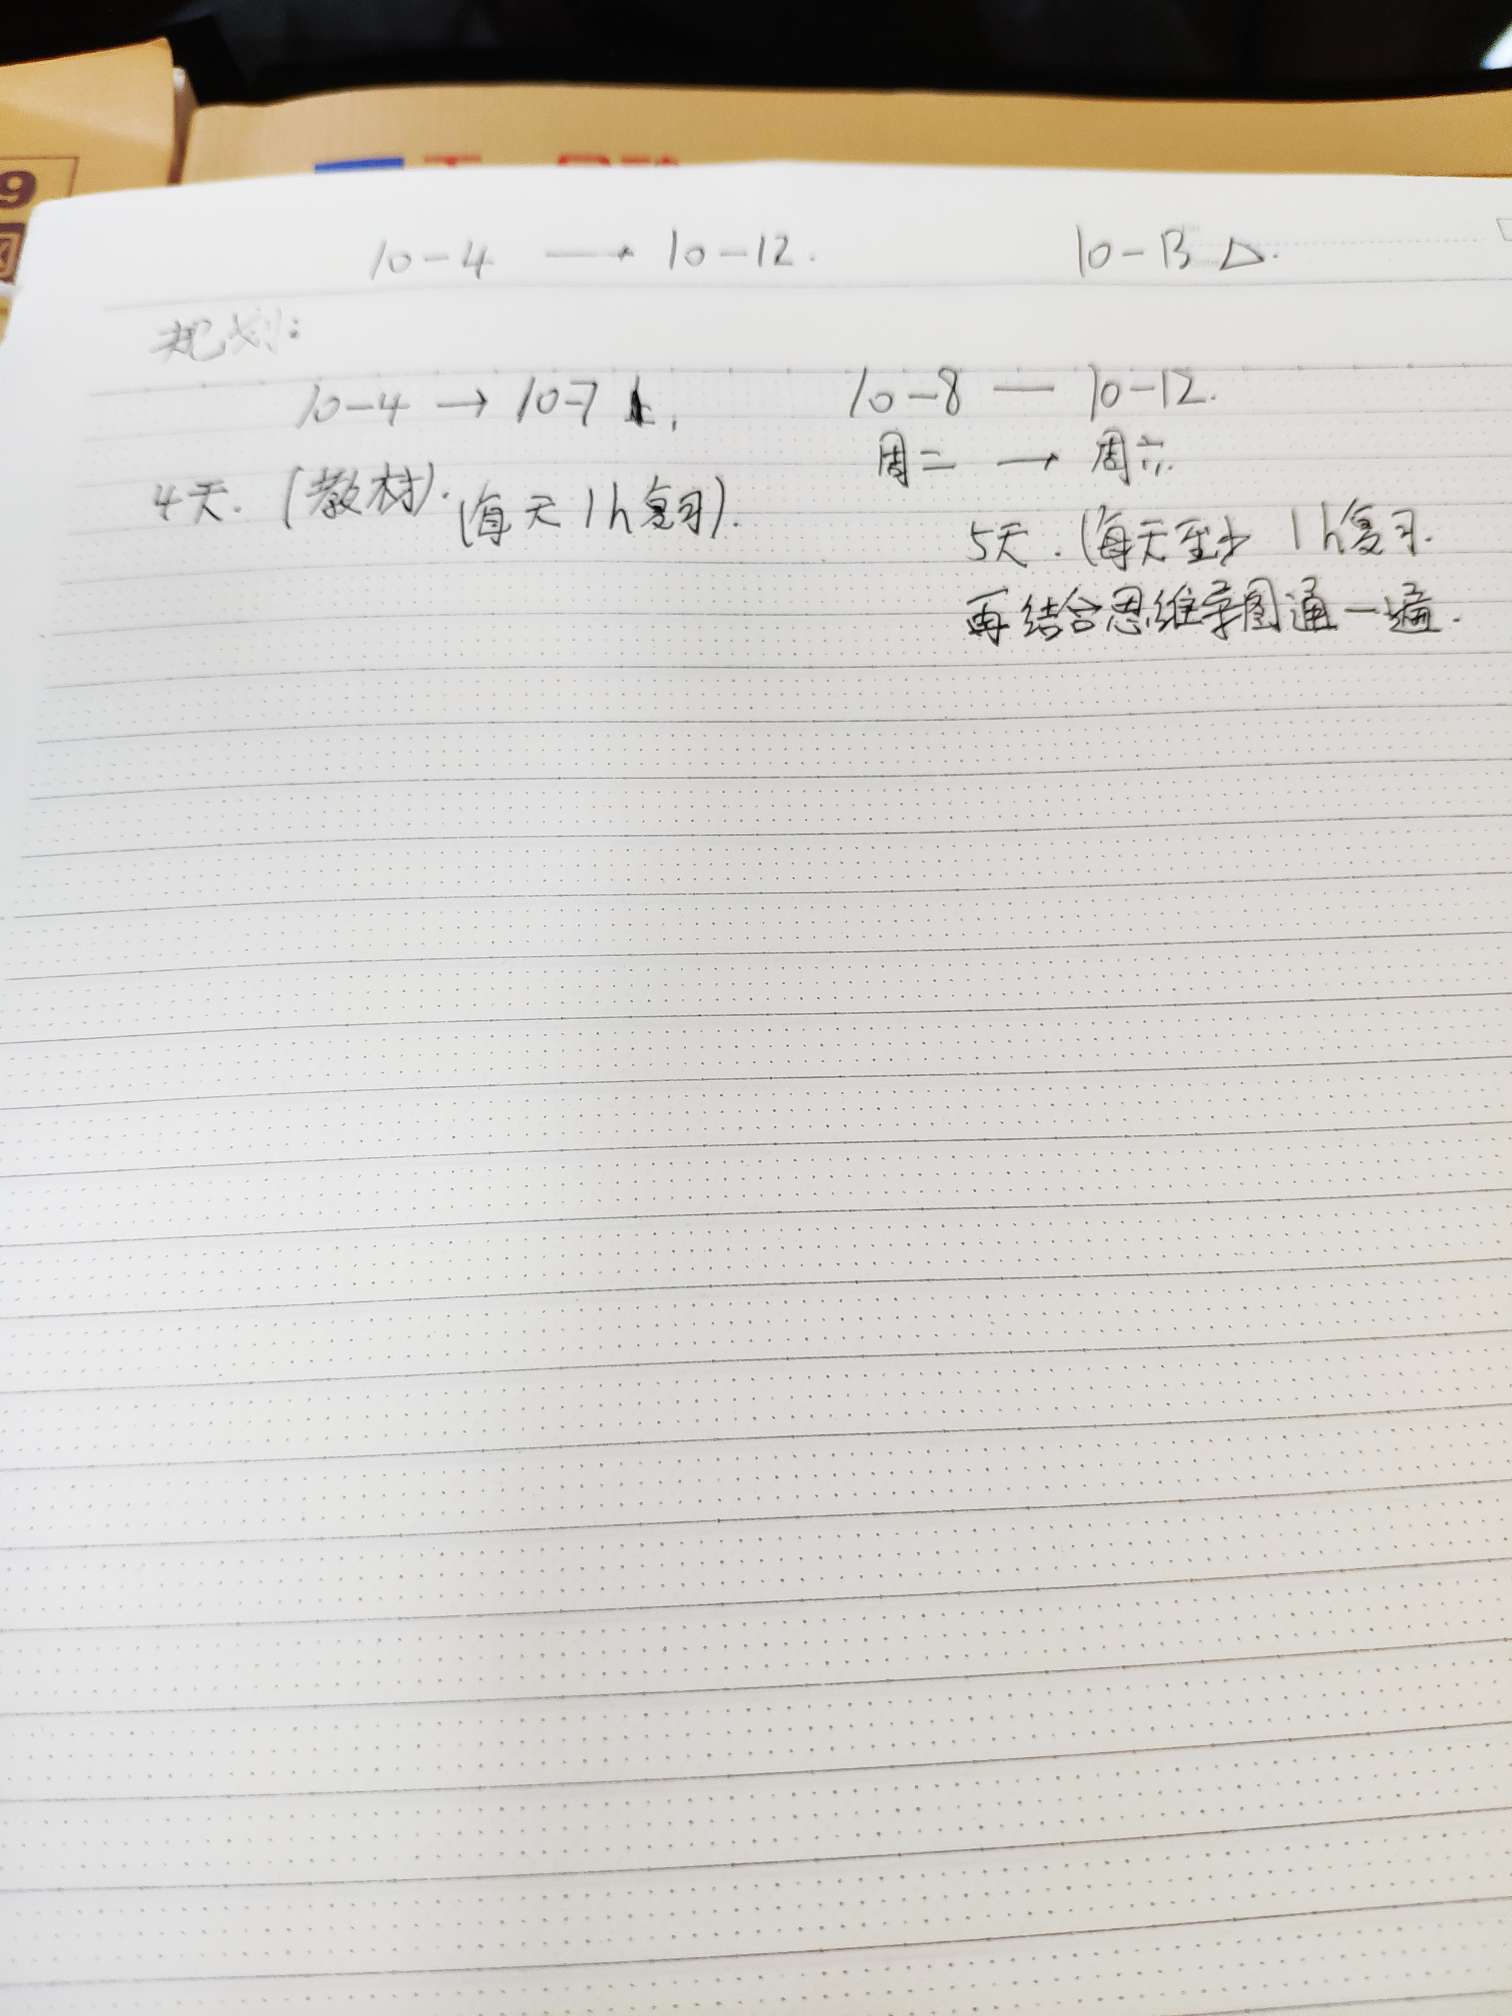 9
10-4 → 10-12. 10-13 △.
规划:
10-4 → 10-7 10-8 — 10-12.
周二 → 周六.
4天. (教材). (每天1h复习).
5天. (每天至少 1h复习.
再结合思维导图通一遍.